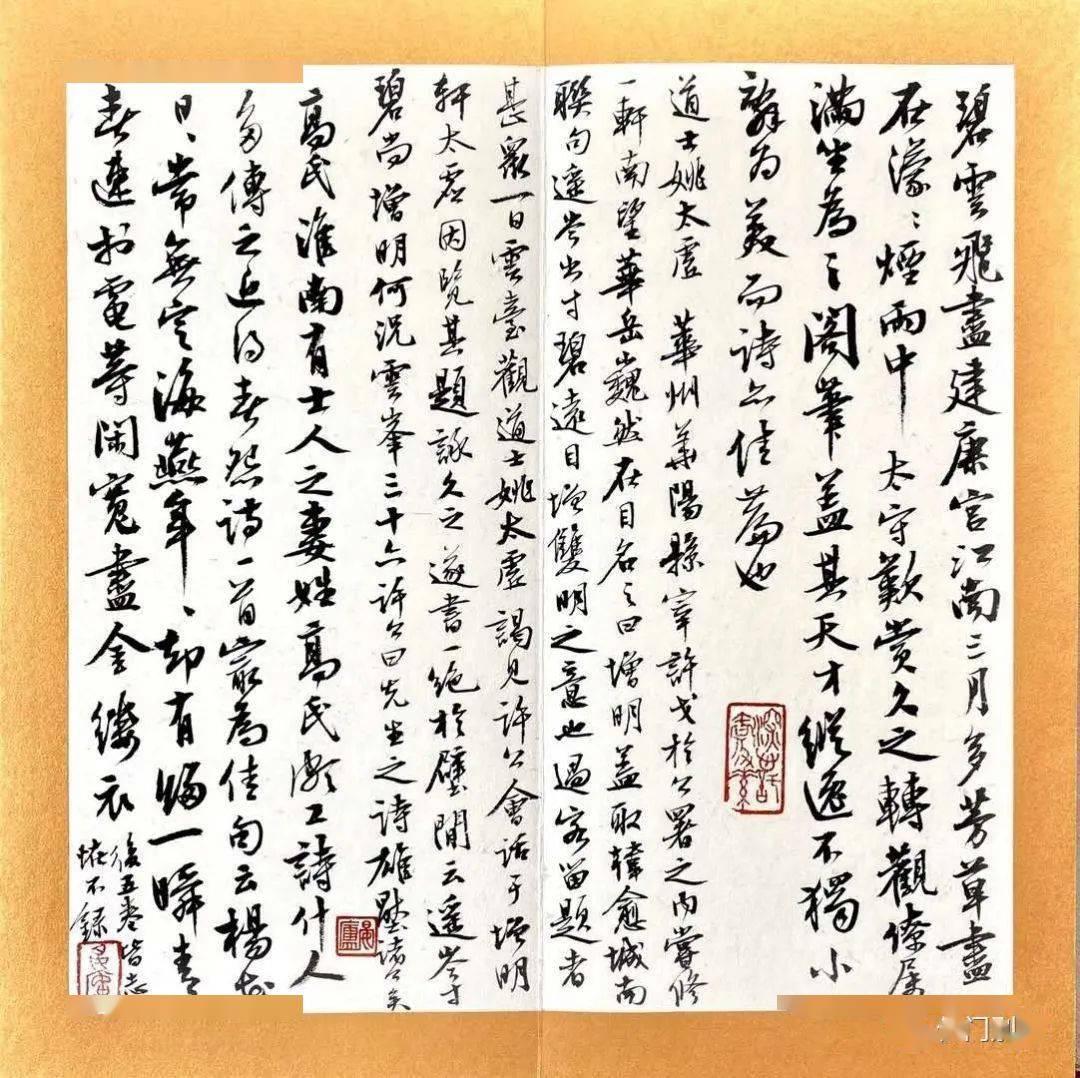 碧雲飛盡建康宮江南三月多芳草盡
在濛〻煙雨中 太守歎賞久之轉觀僚屬
滿坐為之閣筆蓋其天才縱逸不獨小
辭為美而詩亦佳篇也
道士姚太虛 華州華陽縣宰許戈於公署之內嘗修
一軒南望華岳巍然在目名之曰增明蓋取韓愈城南
聯句遥岑出寸碧遠目增雙明之意也過客留題者
甚衆一日雲臺觀道士姚太虛謁見許公會話于增明
軒太虛因覽其題詠久之遂書一絶於壁間云遥岑寸
碧尚增明何況雲峯三十六許公曰先生之詩雄壓諸公矣
高氏淮南有士人之妻姓高氏頗工詩什人
多傳之近得春怨詩一首最為佳句云楊花
日〻常無定海燕年〻却有歸一瞬青
春速於電等閑寬盡金縷衣
後五卷皆志
怪不錄